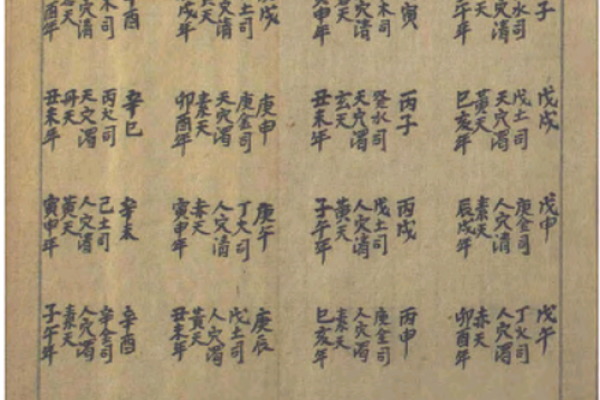 子
水司
天穴清
天
午年
寅
木司
天穴清
天
申年
戌
土司
天穴清
天
戌年
酉
木司
天穴清
天
酉年
戊戌
戊土司
天穴濁
黃天
巳亥年
丙子
癸水司
天穴濁
玄天
丑未年
庚申
庚金司
天穴濁
素天
卯酉年
辛巳
丙火司
天穴濁
丹天
丑未年
戊申
庚金司
人穴清
素天
辰戌年
丙戌
戊土司
人穴清
黃天
子午年
庚午
丁火司
人穴清
赤天
寅申年
辛未
己土司
人穴清
黃天
寅申年
戊午
丁火司
人穴濁
赤天
卯酉年
丙申
庚金司
人穴濁
素天
巳亥年
庚辰
戊土司
人穴濁
黃天
丑未年
辛酉
辛金司
人穴濁
素天
子午年